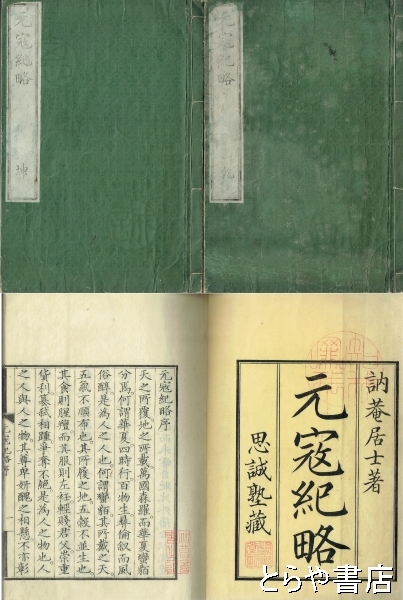 元寇紀略 坤
元寇紀略 乾
訥菴居士著
元寇紀略
思誠塾藏
元寇紀略序
天之所覆地之所載萬國森羅而華夷
分焉何謂華夏四時行百物生彝倫叙而風
俗醇是為人之人也何謂蠻貊其所戴之天
五氣不順布也其所履之地五穀不並生也
其食則腥羶而其服則左衽輕賤君父崇重
貨利篡弑相踵爭奪不絕是為人之物也人
之人與人之物其尊卑妍醜之相懸不亦彰
元寇紀略序
とらや書店